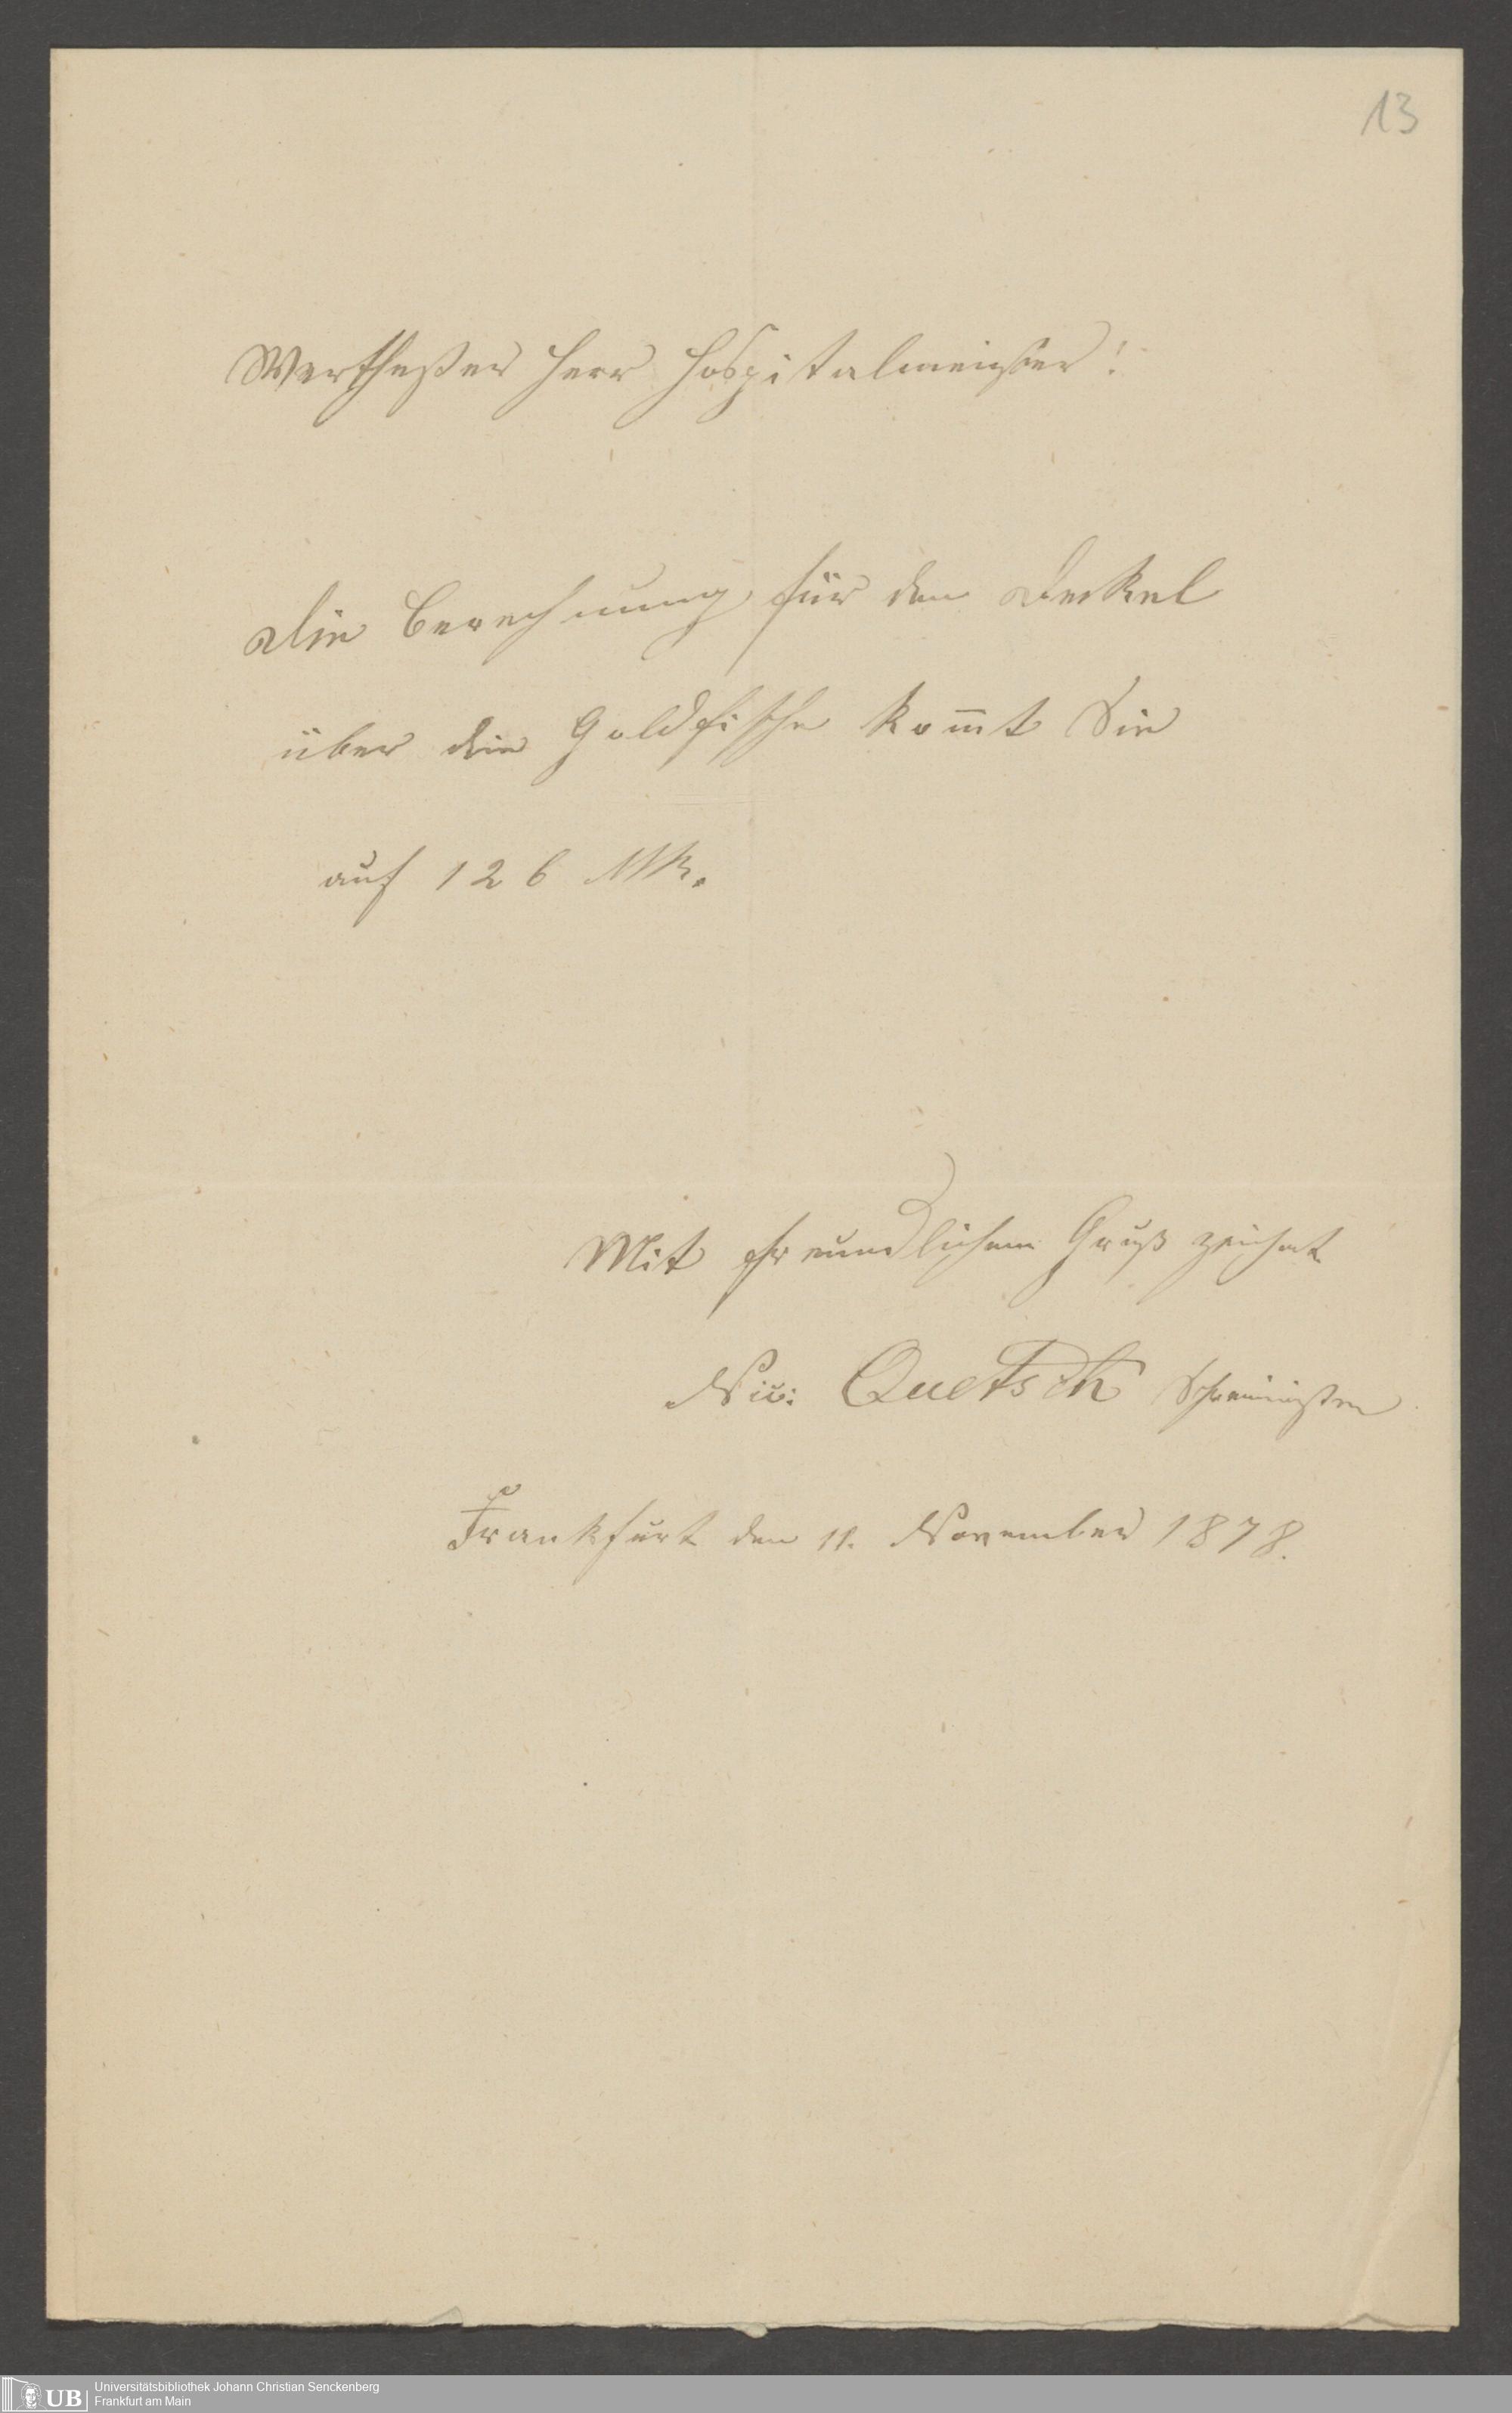 13
Werthester Herr Hospitalmeister!
Die Berechnung für den Deckel
über die Goldfische kom̄t Sie
auf 126 Mk.
Mit freundlichem Gruß zeichnet
Nic: Quetsch Schreinmstr
Frankfurt den 11. November 1878.
UB
Universitätsbibliothek Johann Christian Senckenberg
Frankfurt am Main